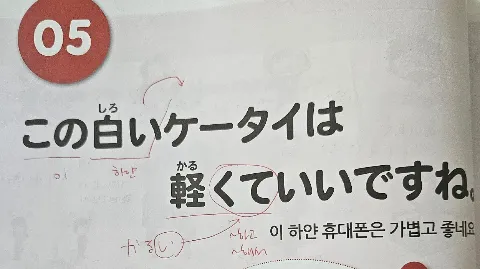 05
しろ
この白いケータイは
이
하얀
かる
軽くていいですね。
이 하얀 휴대폰은 가볍고 좋네요
かるい
~하고
~해서